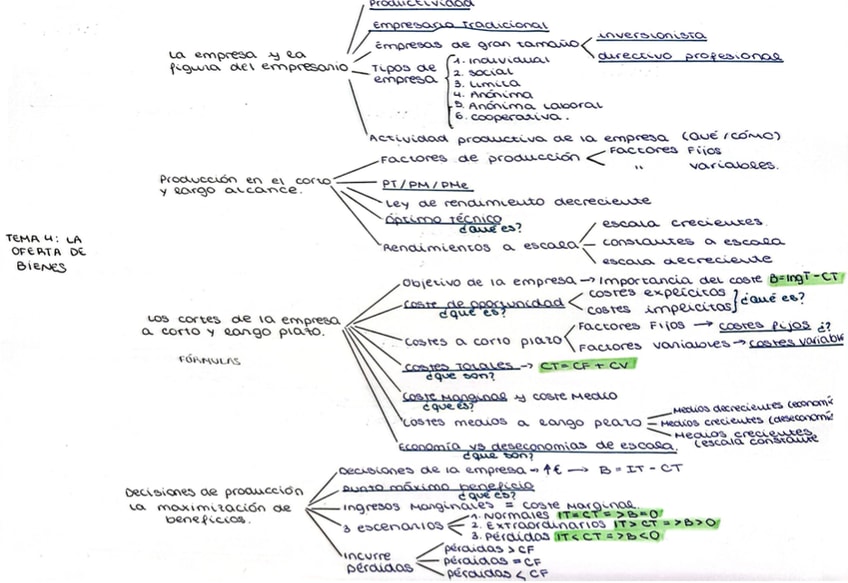 Productividad
Empresario tradicional
Empresas de gran tamaño
inversionista
directivo profesional
La empresa y la
figura del empresario
Tipos de
empresa
1. individual
2. social
3. Limita
4. Anónima
5. Anónima Laboral
6. cooperativa.
Actividad productiva de la empresa (QUÉ/CÓMO)
Factores de producción
Factores Fijos
" variables.
Producción en el corto
y largo alcance.
PT/PM/PMe
Ley de rendimiento decreciente
Óptimo técnico
¿qué es?
Rendimientos a escala
escala crecientes
constantes a escala
escala decreciente
TEMA 4: LA
OFERTA DE
BIENES
Objetivo de la empresa → Importancia del coste B=IngT-CT
Coste de oportunidad
¿qué es?
costes explícitos
costes implícitos
¿Qué es?
Los cortes de la empresa
a corto y largo plazo.
FÓRMULAS
Costes a corto plazo
Factores Fijos → costes fijos ¿?
Factores variables → costes variabl
Costes Totales → CT = CF + CV
¿que son?
Coste Marginal y coste Medio
¿que es?
Costes medios a largo plazo
Medios decrecientes (economí
Medios crecientes (deseconomí
Medios crecientes
(escala constante
Economía vs deseconomías de escala.
¿que son?
Decisiones de producción
La maximización de
beneficios.
Decisiones de la empresa → ↑€ → B = IT - CT
punto máximo beneficio
¿qué es?
Ingresos Marginales = coste Marginal.
3 escenarios
1. Normales IT=CT => B=0
2. Extraordinarios IT>CT => B>0
3. Pérdidas IT<CT => B<0
incurre
pérdidas
pérdidas > CF
pérdidas = CF
pérdidas < CF